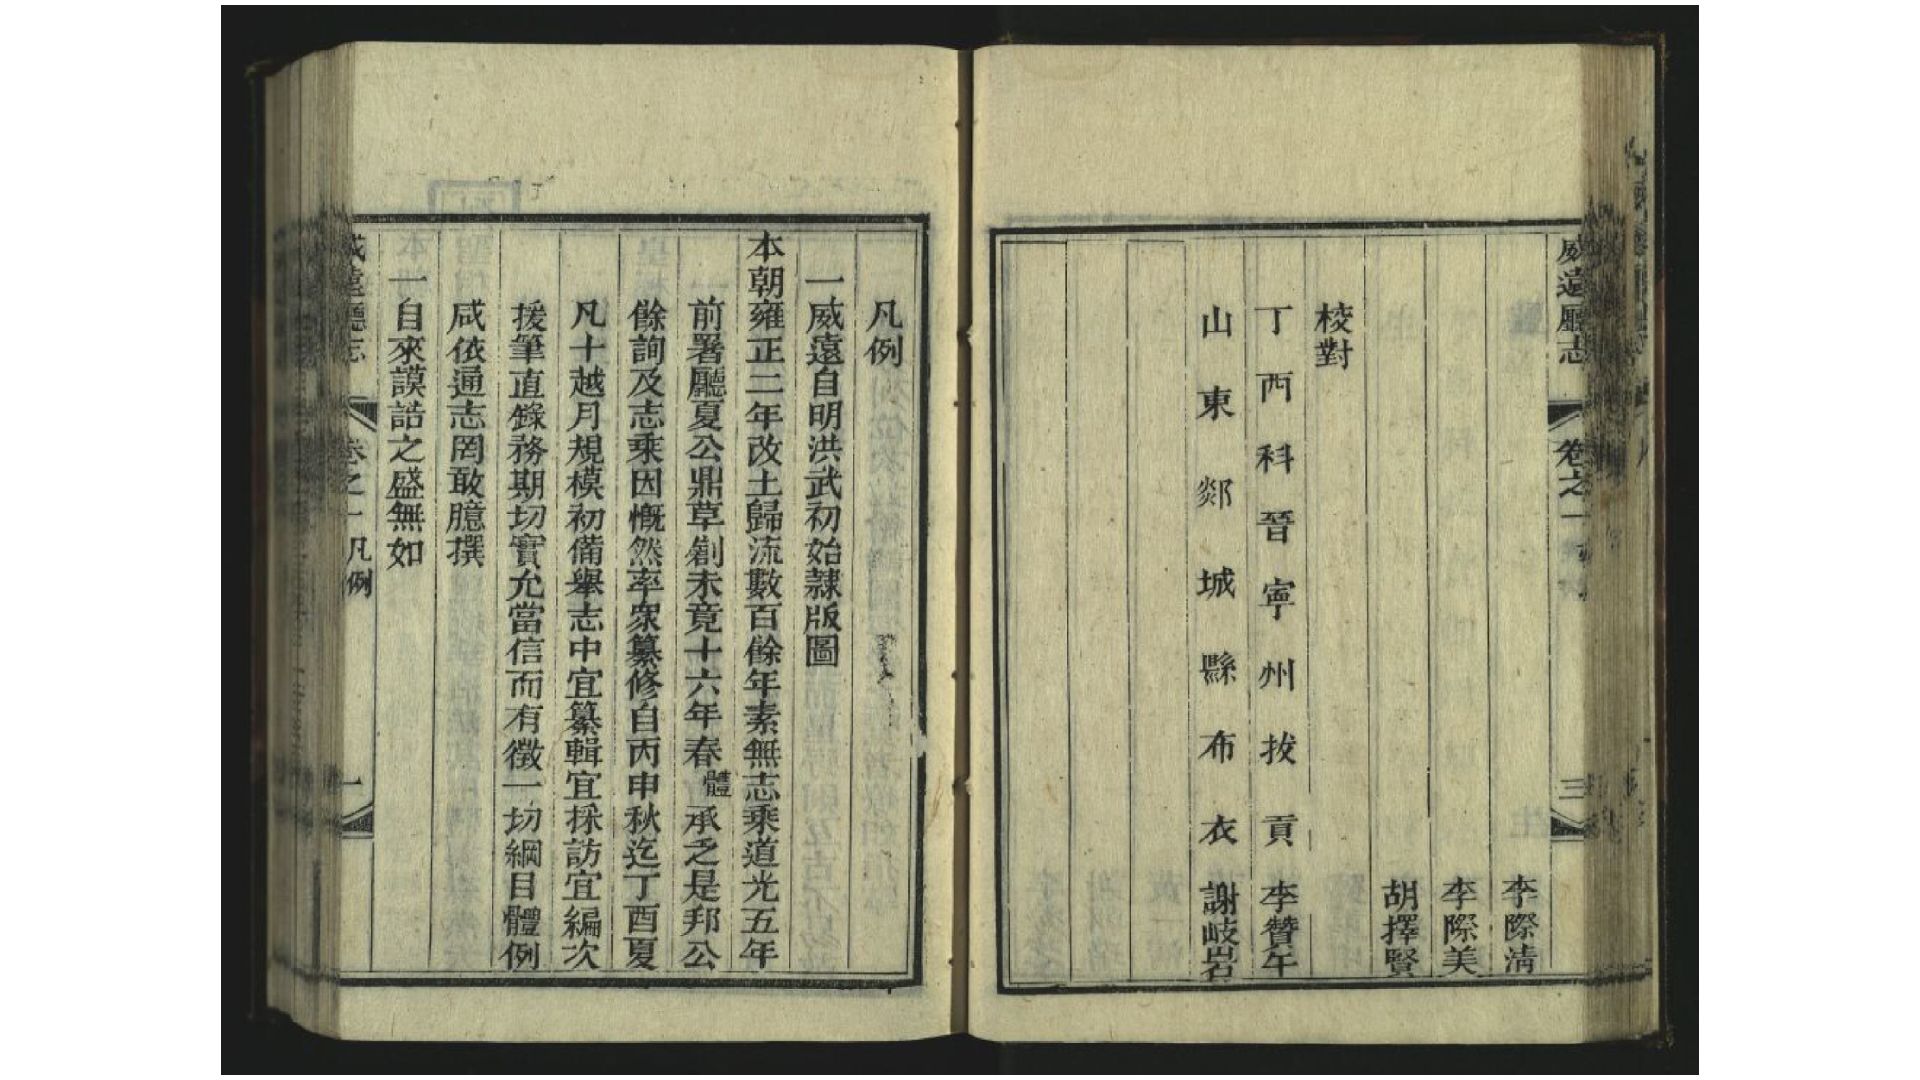 威遠廳志 卷之一 三
李際清
李際美
胡擇賢
校對
丁酉科晉寧州拔貢李贊午
山東郯城縣布衣謝岐岩
凡例
一威遠自明洪武初始隸版圖
本朝雍正二年改土歸流數百餘年素無志乘道光五年
前署廳夏公鼎草創未竟十六年春體承乏是邦公
餘詢及志乘因慨然率衆纂修自丙申秋迄丁酉夏
凡十越月規模初備舉志中宜纂輯宜採訪宜編次
援筆直錄務期切實允當信而有徵一切綱目體例
咸依通志罔敢臆撰
一自來謨誥之盛無如
威遠廳志 卷之一 凡例 一